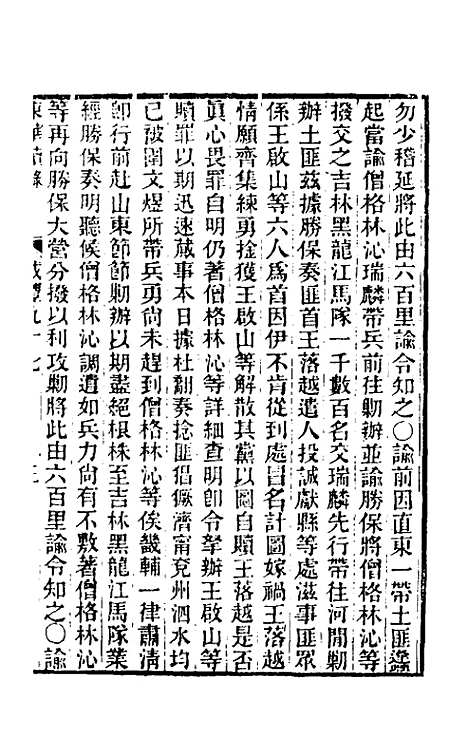 勿少稽延將此由六百里諭令知之〇諭前因直東一帶土匪
起當諭僧格林沁瑞麟帶兵前往勦辦並諭勝保將僧格林沁等
撥交之吉林黑龍江馬隊一千數百名交瑞麟先行帶往河間勦
辦土匪茲據勝保奏匪首王落越遣人投誠獻縣等處滋事匪眾
係王啟山等六人為首因伊不肯從到處冒名計圖嫁禍王落越
情願齊集練勇捡獲王啟山等解散其黨以圖自贖王落越是否
眞心畏罪自明仍著僧格林沁等詳細查明卽令拏辦王啟山等
贖罪以期迅速蕆事本日據杜翻奏捻匪倡獗濟甯兗州泗水均
已被圍文煜所帶兵勇尚未趕到僧格林沁等俟畿輔一律肅清
卽行前赴山東節節勦辦以期盡絕根株至吉林黑龍江馬隊業
經勝保奏明聽候僧格林沁調遣如兵力尙有不敷著僧格林沁
等再向勝保大營分撥以利攻勦將此由六百里諭令知之〇諭
東華續錄 咸豐九十七